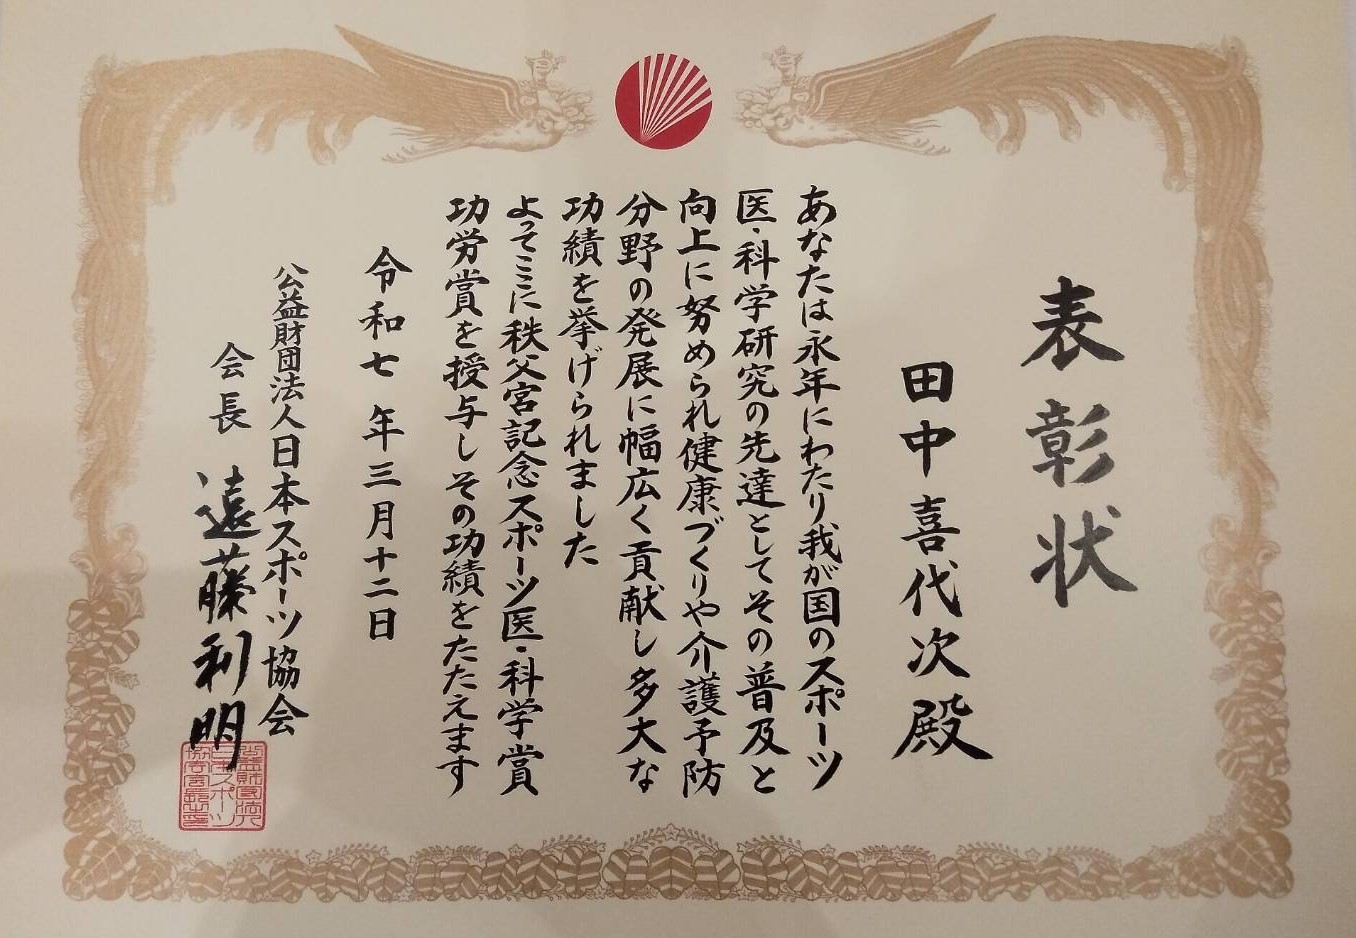 表彰状
田中喜代次殿
あなたは永年にわたり我が国のスポーツ
医・科学研究の先達としてその普及と
向上に努められ健康づくりや介護予防
分野の発展に幅広く貢献し多大な
功績を挙げられました
よってここに秩父宮記念スポーツ医・科学賞
功労賞を授与しその功績をたたえます
令和七年三月十二日
公益財団法人日本スポーツ協会
会長 遠藤利明